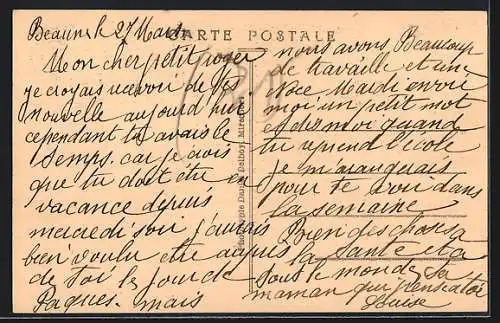 Beaune le 27 Mars
CARTE POSTALE
Mon cher petit roger
je croyais recevoir de tes
nouvelle aujourd hui
cependant tu avais le
temps. car je crois
que tu doit être en
vacance depuis
mercredi soir j'aurais
bien voulu etre auprès
de toi le jour de
Paques. mais
nous avons Beaucoup
de travaille et une
noce Mardi envoi
moi un petit mot
et dis moi quand
tu reprend l'école
je m'arrangerais
pour te voir dans
la semaine
Bien des choses a
la tante et a
tout le monde ta
maman qui pense a toi
Louise
Photographie